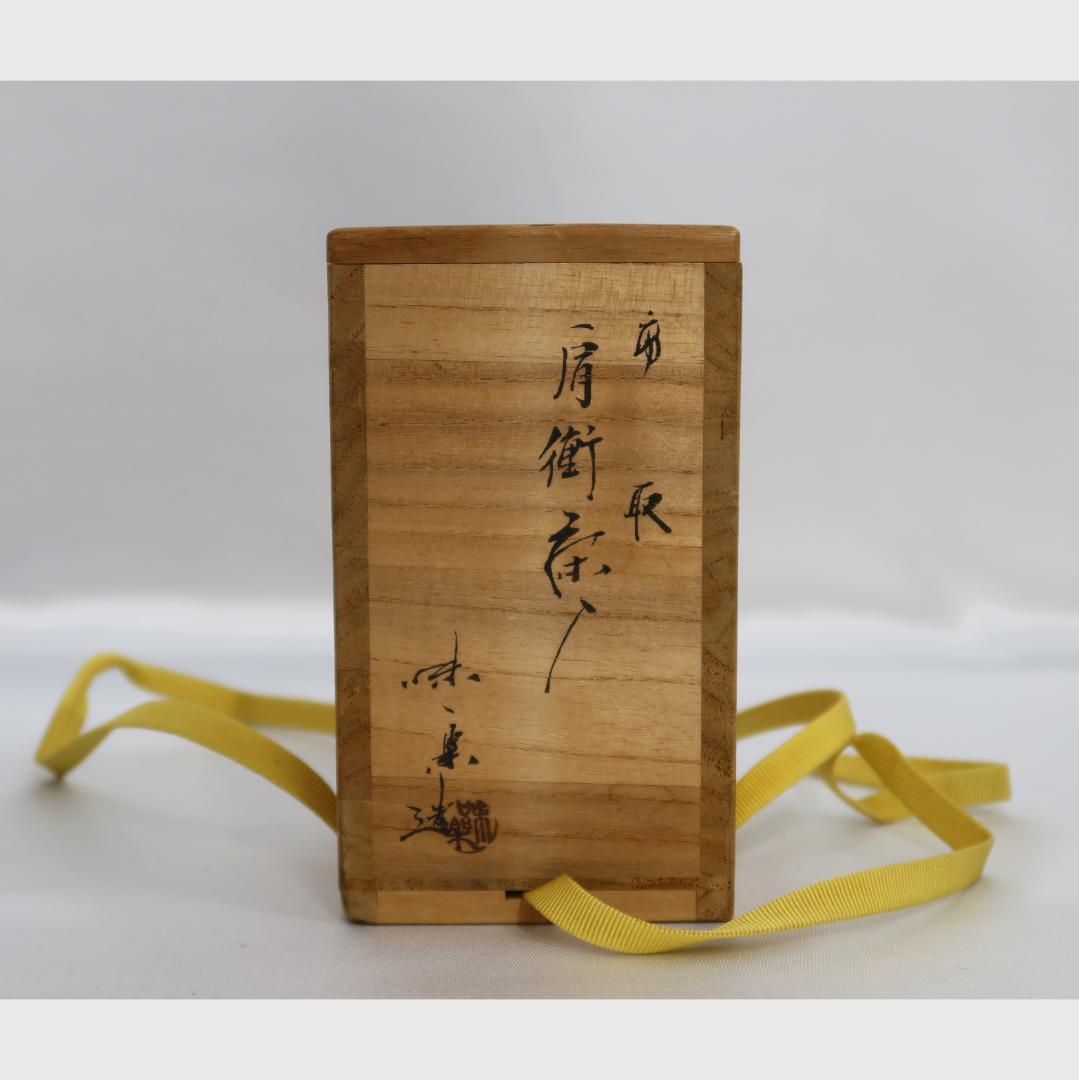 高取
肩衝茶入
味楽造
味楽